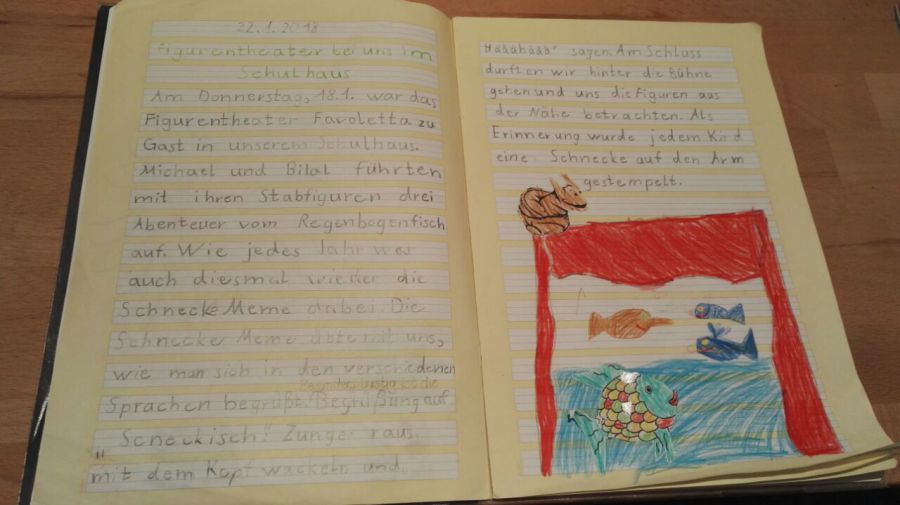 22.1.2018
Figurentheater bei uns im
Schulhaus
Am Donnerstag, 18.1. war das
Figurentheater Favoletta zu
Gast in unserem Schulhaus.
Michael und Bilal führten
mit ihren Stabfiguren drei
Abenteuer vom Regenbogenfisch
auf. Wie jedes Jahr war
auch diesmal wieder die
Schnecke Meme dabei. Die
Schnecke Meme uns,
wie man sich in den verschiedenen
ist die
Sprachen begrüßt. Begrüßung auf
Scneckisch: Zunge raus.
mit dem Kopf wackeln und
Hääähäää" sagen. Am Schluss
durften wir hinter die Bühne
gehen und uns die Figuren aus
der Nähe betrachten. Als
Erinnerung wurde jedem Kind
eine Schnecke auf den Arm
gestempelt.